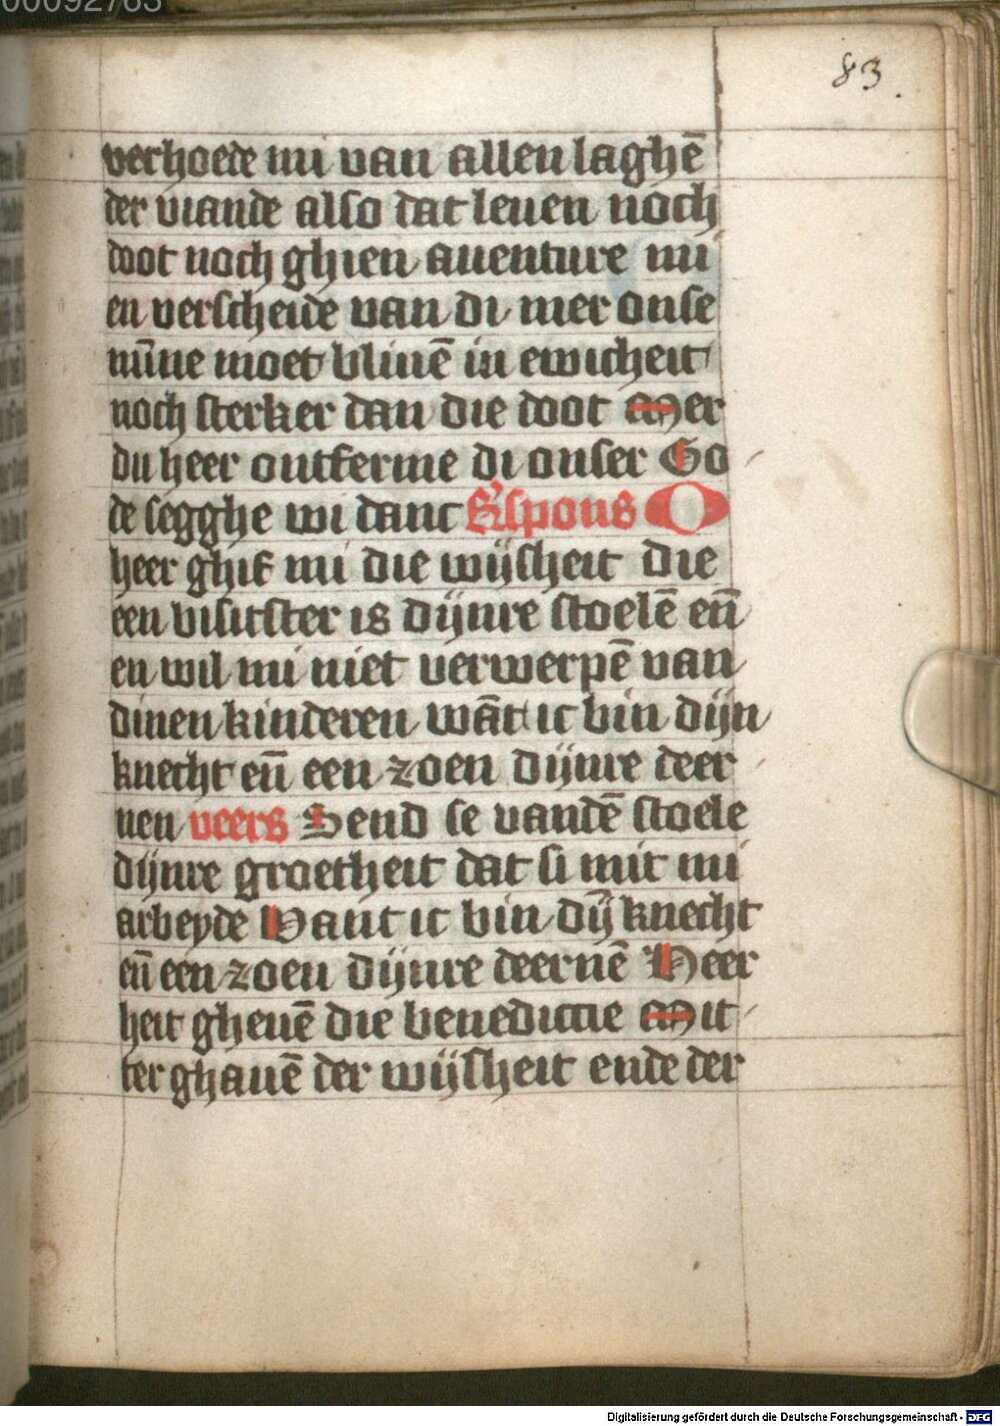 00092763
83.
verhoede mi van allen laghē
der viande also dat leuen noch
doot noch ghien auenture mi
en verscheide van di mer onse
mīne moet bliuē in ewicheit
noch sterker dan die doot Mer
du heer ontferme di onser Go
de segghe wi danc Rspons O
heer ghif mi die wijsheit die
een visitster is dijnre stoelē eñ
en wil mi niet verwerpē van
dinen kinderen wāt ic bin dijn
knecht eñ een zoen dijnre deer
nen veers Send se vandē stoele
dijnre groetheit dat si mit mi
arbeyde Want ic bin dij̄ knecht
eñ een zoen dijnre deernē Heer
heit gheuē die benedictie Mit
ter ghauē der wijsheit ende der
Digitalisierung gefördert durch die Deutsche Forschungsgemeinschaft - DFG